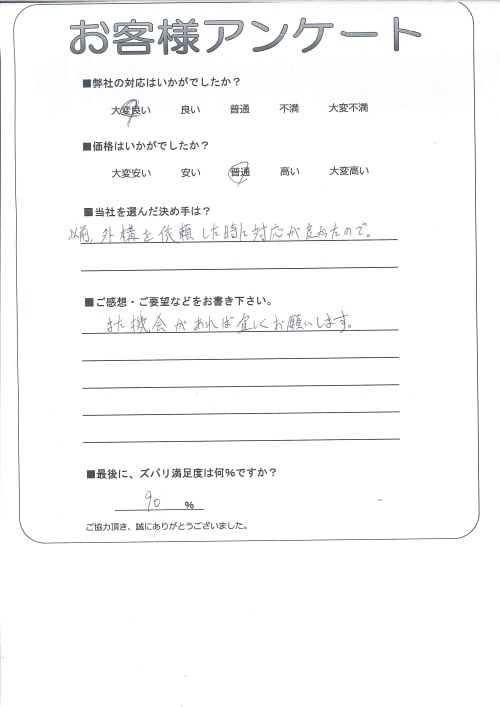 お客様アンケート
■弊社の対応はいかがでしたか？
大変良い 良い 普通 不満 大変不満
■価格はいかがでしたか？
大変安い 安い 普通 高い 大変高い
■当社を選んだ決め手は？
以前、外構を依頼した時に対応が良かったので。
■ご感想・ご要望などをお書き下さい。
また機会があれば宜しくお願いします。
■最後に、ズバリ満足度は何%ですか？
90 %
ご協力頂き、誠にありがとうございました。